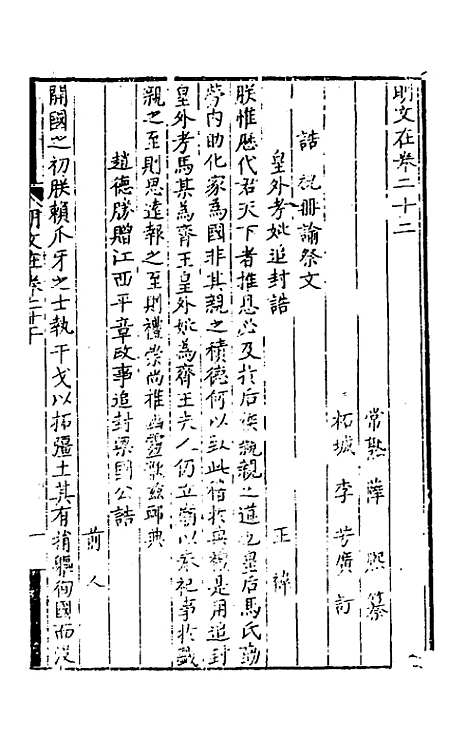 明文在卷二十二
常熟 薛 熙 纂
柘城 李 芳廣 訂
誥 祝冊 諭祭文
皇外考妣追封誥 王 禕
朕惟歷代君天下者推恩必及於后族親親之道也皇后馬氏勤
勞內助化家為國非其親之積德何以致此稽於典禮是用追封
皇外考馬某為齊王皇外妣為齊王夫人仍立廟以奉祀事於戲
親之至則思遠報之至則禮崇尚惟幽靈歆茲卹典
趙德勝贈江西平章政事追封梁國公誥 前 人
開國之初朕賴爪牙之士執干戈以拓疆土其有捐軀徇國而沒
明文在卷二十二
一